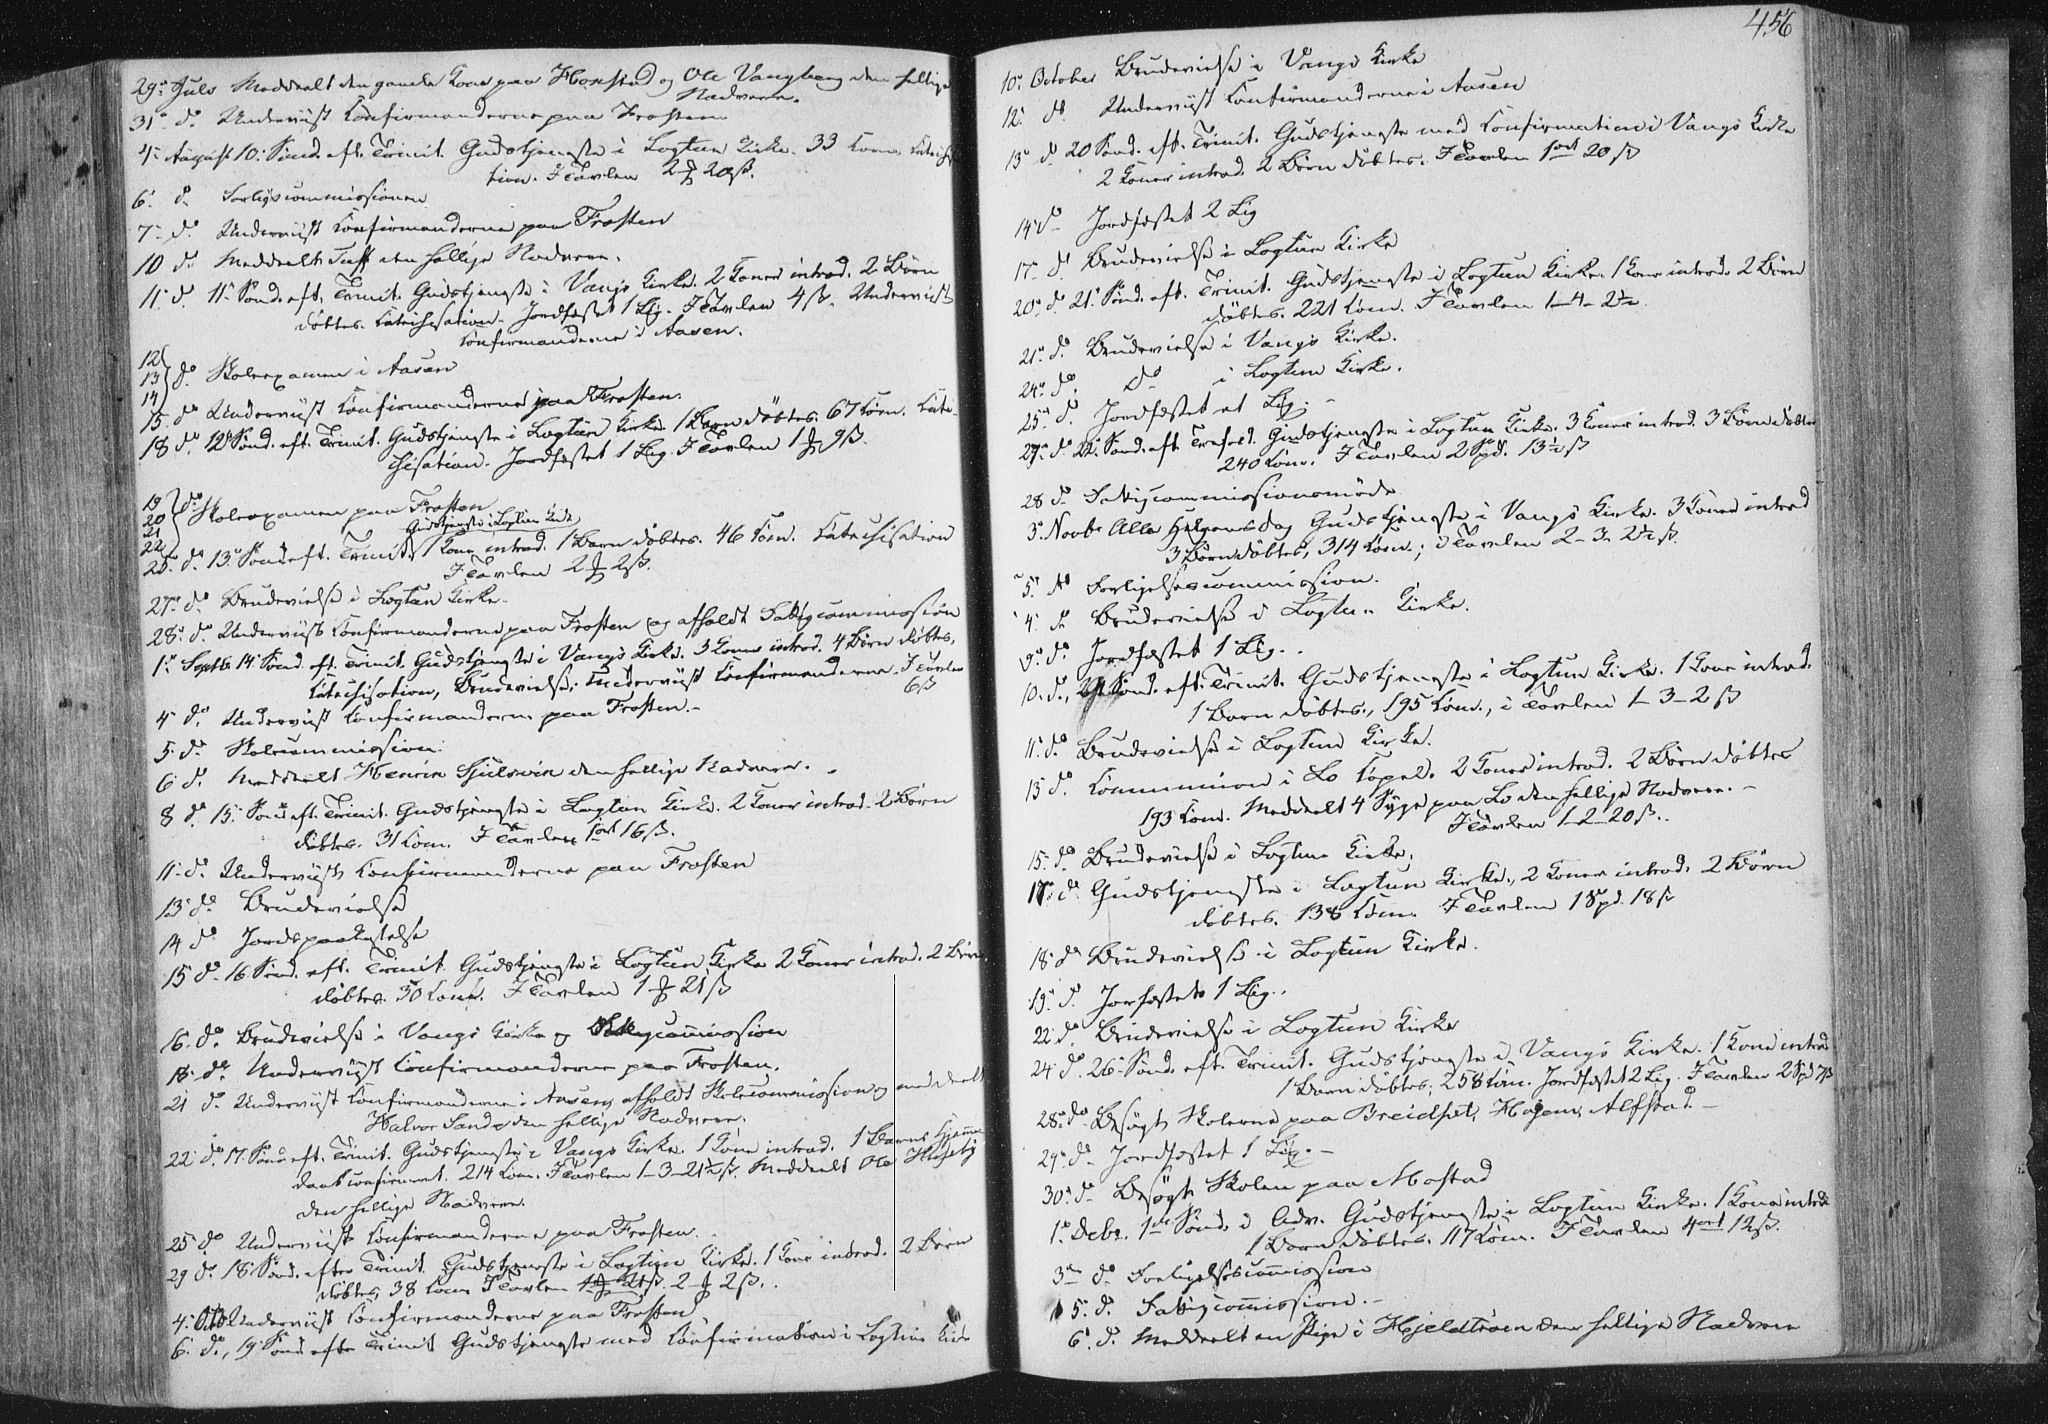 29. Juli Meddeelt den gamle Kone paa Hopstad og Ole Vangberg den hellige
Nadvere.
31. do. Underviist Confirmanderne paa Frosten
4. August 10. Sönd. eft. Trinit. Gudstjeneste i Logtun Kirke. 33 Com. Catechisa-
tion. I Tavlen 2 ℔ 20 ß.
6. do Forligscommissionen
7. do. Underviist Confirmanderne paa Frosten
10 do. Meddeelt den hellige Nadvere.
11. do. 11. Sönd. eft. Trinit. Gudstjeneste i Vangs Kirke. 2 Koner introd. 2 Börn
döbtes. Catechisation. Jordfæstet 1 Lig. I Tavlen 4 ß. Underviist
Confirmanderne i Aasen.
12
13 do Skoleexamen i Aasen
14
15. do Underviist Confirmanderne paa Frosten.
18 do. 12 Sönd. eft. Trinit. Gudstjeneste i Logtun Kirke. 1 Barn döbtes. 67 Com. Cate-
chisation. Jordfæstet 1 Lig. I Tavlen 1 ℔ 9 ß.
19
20 do Skoleexamen paa Frosten
21
22
Gudstjeneste i Logtun Kirke
25. do. 13. Sönd. eft. Trinit. 1 Kone introd. 1 Barn döbtes. 46 Com. Catechisation
I Tavlen 2 ℔ 2 ß.
27. do. Brudevielse i Logtun Kirke.
28. do. Underviist Confirmanderne paa Frosten og afholdt Fattigcommission
1. Septbr. 14 Sönd. eft. Trinit. Gudstjeneste i Vangs Kirke. 3 Koner introd. 4 Börn döbtes,
Catechisation, Brudevielse. Underviist Confirmanderne. I Tavlen
6 ß
4. do. Underviist Confirmanderne paa Frosten.
5. do. Skolecommission.
6 do. Meddeelt Henrik den hellige Nadvere.
8 do. 15. Sönd. eft. Trinit. Gudstjeneste i Logtun Kirke. 2 Koner introd. 2 Börn
döbtes. 31 Com. I Tavlen 1 ort 16 ß.
11. do. Underviist Confirmanderne paa Frosten
13. do. Brudevielse
14 do. Jordspaakastelse
15 do. 16 Sönd. eft. Trinit. Gudstjeneste i Logtun Kirke 2 Koner introd. 2 Börn
döbtes. 30 Com. I Tavlen 1 ℔ 21 ß
16. do. Brudevielse i Vangs Kirke og Fattigcommission
18. do. Underviist Confirmanderne paa Frosten.
21 do. Underviist Confirmanderne i Aasen, afholdt Skolecommission og meddeelt
Halvor Sande den hellige Nadvere.
22 do. 17. Sönd. eft. Trinit. Gudstjeneste i Vangs Kirke. 1 Kone introd. 1 Barns Hjemme
daab confirmeret. 214 Com. I Tavlen 1-3-21½ ß. Meddeelt Ole Huseby
den hellige Nadvere.
25 do Underviist Confirmanderne paa Frosten.
29 do. 18. Sönd. efter Trinit. Gudstjeneste i Logtun Kirke. 1 Kone introd. 2 Börn
döbtes, 38 Com. I Tavlen 2 ℔ 2 ß.
4. Octb. Underviist Confirmanderne paa Frosten
6. do., 19 Sönd. efter Trinit. Gudstjeneste med Confirmation i Logtun Kirke
456
10. October Brudevielse i Vangs Kirke
12. do. Underviist Confirmanderne i Aasen
13. do 20 Sönd. eft. Trinit. Gudstjeneste med Confirmation i Vangs Kirke
2 Koner introd. 2 Börn döbtes. I Tavlen 1 ort 20 ß
14 do Jordfæstet 2 Lig
17. do. Brudevielse i Logtun Kirke
20. do. 21. Sönd. eft. Trinit. Gudstjeneste i Logtun Kirke. 1 Kone introd. 2 Börn
döbtes. 221 Com. I Tavlen 1-4-2½.
21. do. Brudevielse i Vangs Kirke.
24. do. do i Logtun Kirke.
25. do. Jordfæstet et Lig.
27. do. 22. Sönd. eft. Trefold. Gudstjeneste i Logtun Kirke. 3 Koner introd. 3 Börn döbtes
240 Com. I Tavlen 2 Spd. 13½ ß
28 do. Fattigcommissionsmöde
3. Novbr. Alle Helgens dag Gudstjeneste i Vangs Kirke. 3 Koner introd
3 Börn döbtes, 314 Com.; i Tavlen 2-3-2½ ß.
5. do Forligelsescommission.
4. do Brudevielse i Logtun Kirke.
9. do. Jordfæstet 1 Lig.
10. do., 24 Sönd. eft. Trinit. Gudstjeneste i Logtun Kirke. 1 Kone introd.
1 Barn döbtes., 195 Com., i Tavlen 1-3-2 ß
11. do. Brudevielse i Logtun Kirke.
13 do. Communion i Lo Capel. 2 Koner introd. 2 Börn döbtes
193 Com. Meddeelt 4 Syge paa Lo den hellige Nadvere.
I Tavlen 1-2-20 ß.
15. do. Brudevielse i Logtun Kirke.
17. do. Gudstjeneste i Logtun Kirke., 2 Koner introd. 2 Börn
döbtes. 138 Com. I Tavlen 1 Spd. 18 ß
18. do Brudevielse i Logtun Kirke.
19. do. Jorfæstet 1 Lig.
22. do. Brudevielse i Logtun Kirke
24 do. 26. Sönd. eft. Trinit. Gudstjeneste i Vangs Kirke. 1 Kone introd
1 Barn döbtes; 258 Com. Jordfæstet 2 Lig. I Tavlen 2 Spd 7 ß
28. do. Besögt Skolerne paa Breidset, Hojem, Alfstad.
29. do. Jordfæstet 1 Lig.
30. do Besögt Skolen paa Mostad
1. Decbr. 1ste Sönd. i Adv. Gudstjeneste i Logtun Kirke. 1 Kone introd.
1 Barn döbtes. 117 Com. I Tavlen 4 ort 12 ß.
3. do Forligelsescommission
5. do. Fattigcommission.
6. do. Meddeelt en Pige i Hjeldtröen den hellige Nadvere